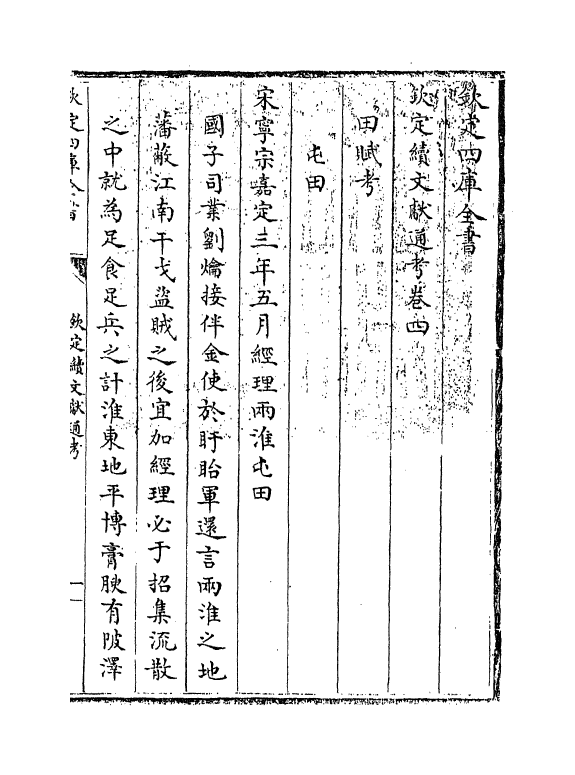 欽定四庫全書
欽定續文獻通考卷四
田賦考
屯田
宋寧宗嘉定三年五月經理兩淮屯田
國子司業劉爚接伴金使於盱眙軍還言兩淮之地
藩蔽江南干戈盜賊之後宜加經理必于招集流散
之中就為足食足兵之計淮東地平博膏腴有陂澤
欽定四庫全書
欽定續文獻通考
一